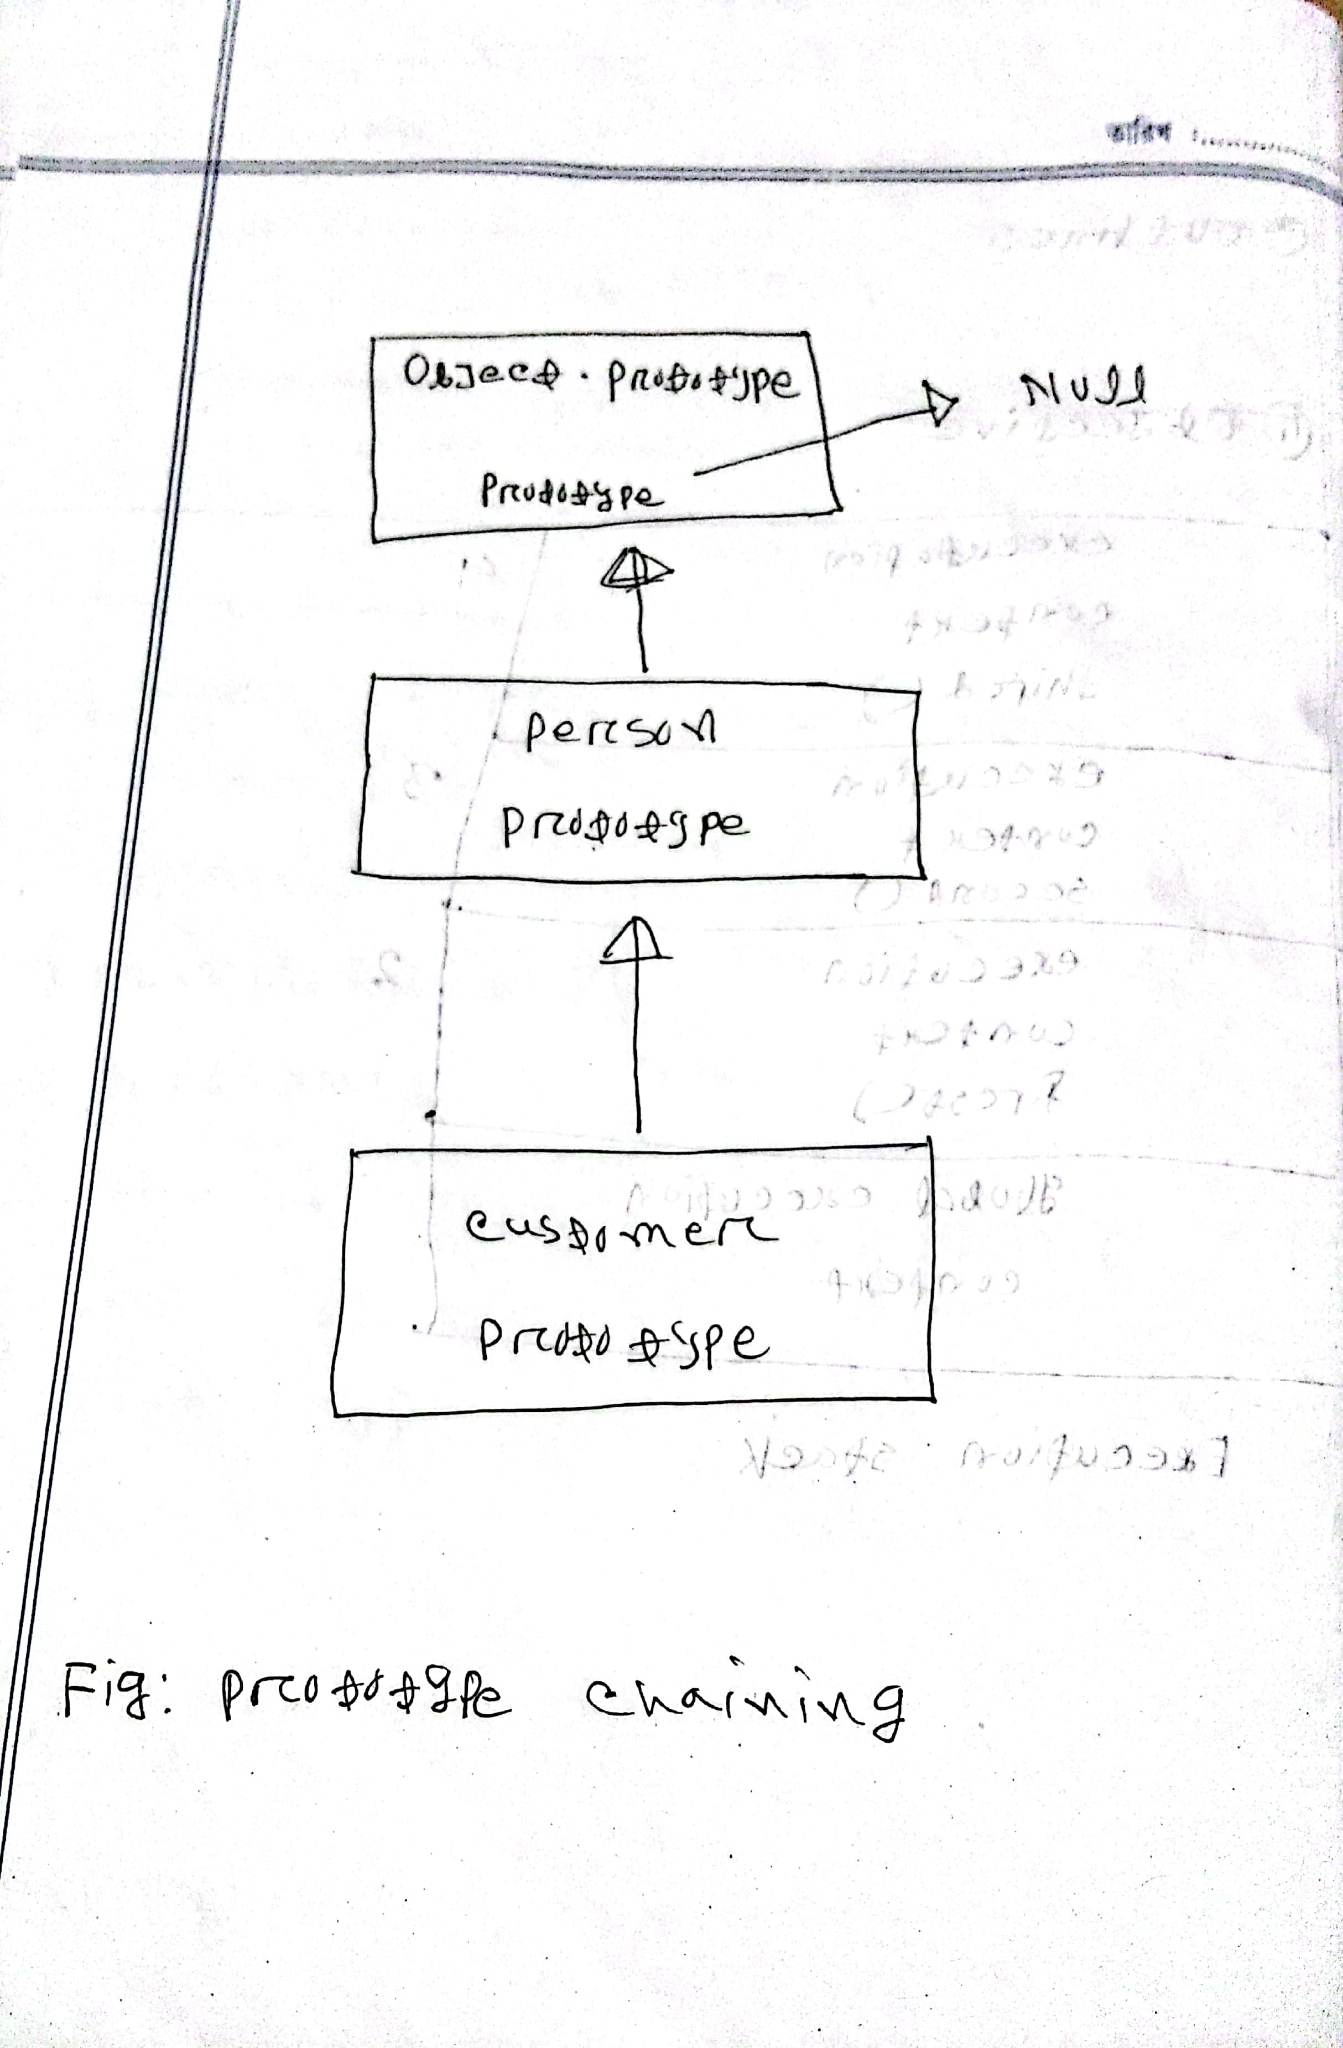 তারিখ :
Object. prototype
Null
Prototype
person
prototype
customer
prototype
Fig: prototype chaining